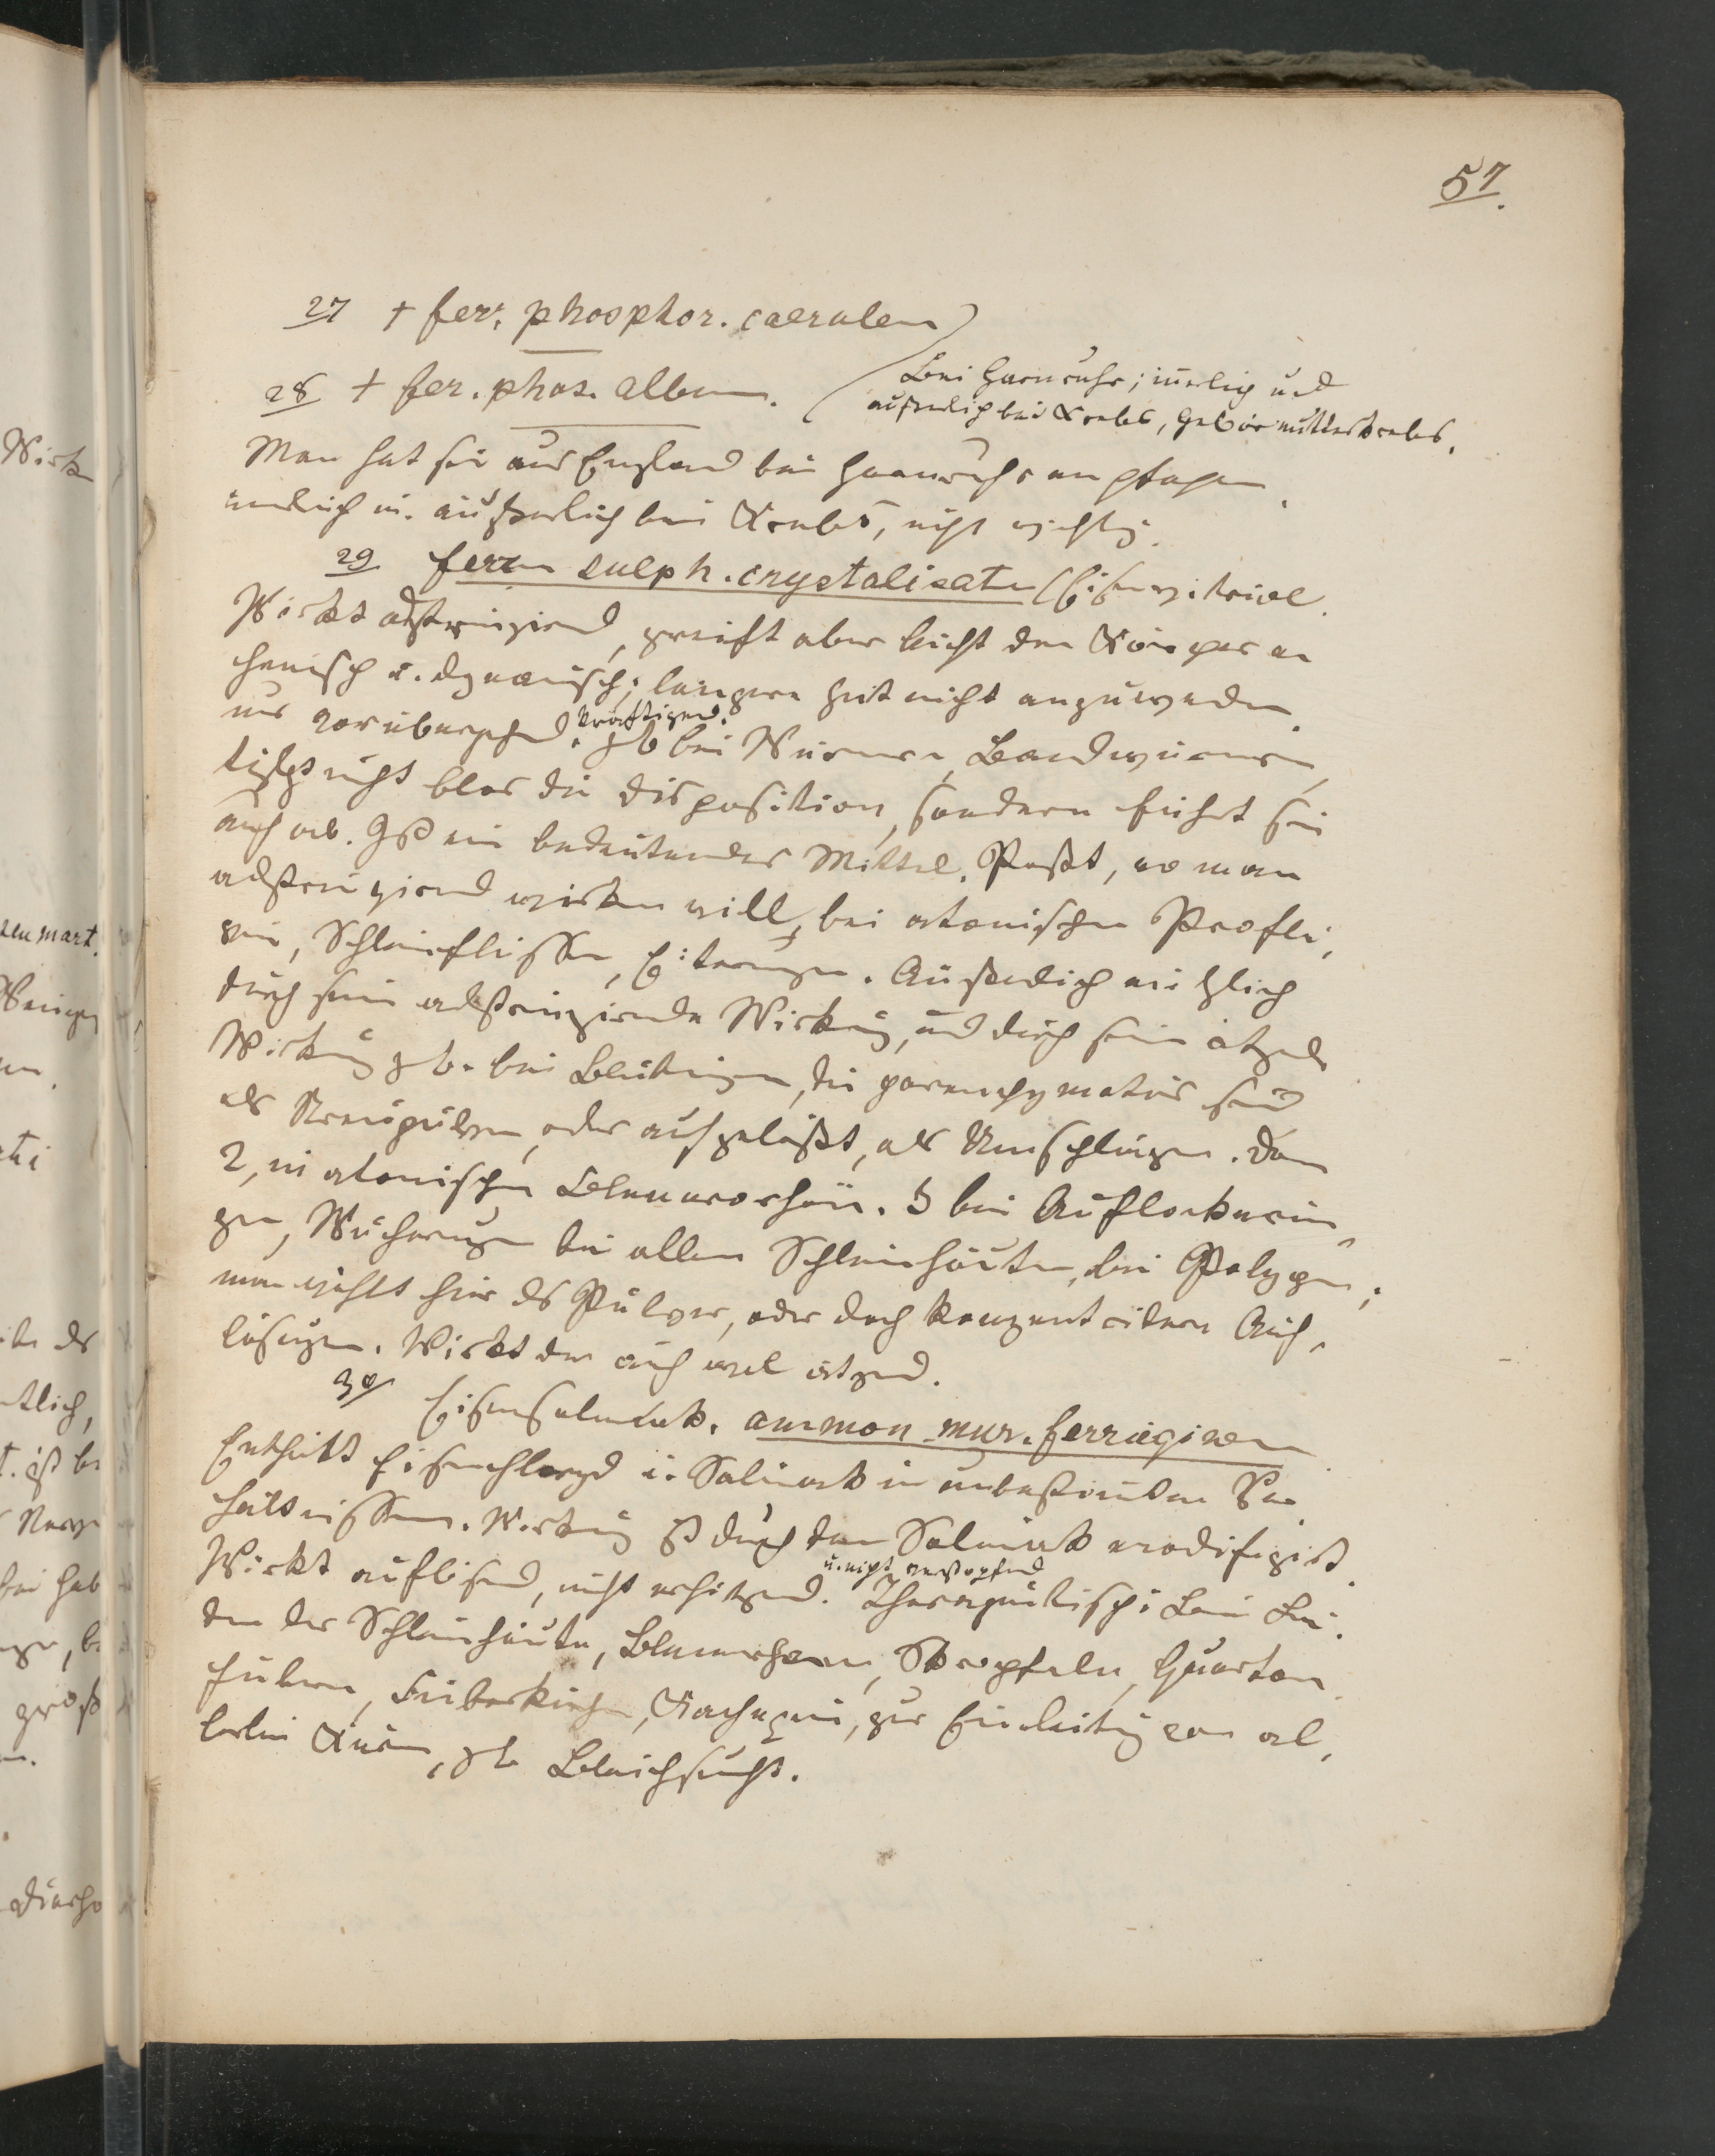 57.
27 + fer. phosphor. caerulem
28 + fer. phos. album.
Bei Harnruhr; inerlich und
äußerlich bei Krebs, Gebärmutterkrebs.
Man hat sie aus England bei Harnruhr empfohlen
innerlich u. äußerlich bei Krebs, nicht wichtig.
29 ferrm sulph. crystalisatm (Eisenvitriol.
Wirkt adstringirend, greift aber leicht den Körper an
chemisch u. dynamisch; längere Zeit nicht anzuwenden
nur vorübergehend. kräftigend. zb bei Würmern, Bandwürmern,
tilgt nicht blos die Disposition, sondern führt sie
auch ab. Ist ein bedeutendes Mittel. Paßt, wo man
adstringirend wirken will, bei atonischen Profluvien,
Schleimflüssen, Eiterungen. Äußerlich nützlich
durch seine adstringirende Wirkung, und durch seine ätzende
Wirkung z b. bei Blutungen, die parenchymatös sind
als Streupulver, oder aufgelößt, als Umschlägen. Dann
2, in atonischen Blennorrhöen. 3 bei Auflockerun
gen, Wucherungen bei allen Schleimhäuten, bei Polypen;
man wählt hier ds Pulver, oder doch konzentrirtere Auf,
lösungen. Wirkt dan auch wol ätzend.
30 Eisensalmiak. ammon. mur. ferruginem
Enthält Eisenchloryd u. Salmiak in unbestimten Ver
hältnissen. Wirkung ist durch den Salmiak modifizirt.
Wirkt auflösend, nicht erhitzend. u. nicht verstopfend Therapeutisch: Beim Lei
den der Schleimhäute, Blenorrhoen, Skropheln, Quartan
fiebern, Fieberkuchen, Kachexien, zur Einleitung von al,
lerlei Kuren, zb Bleichsucht.